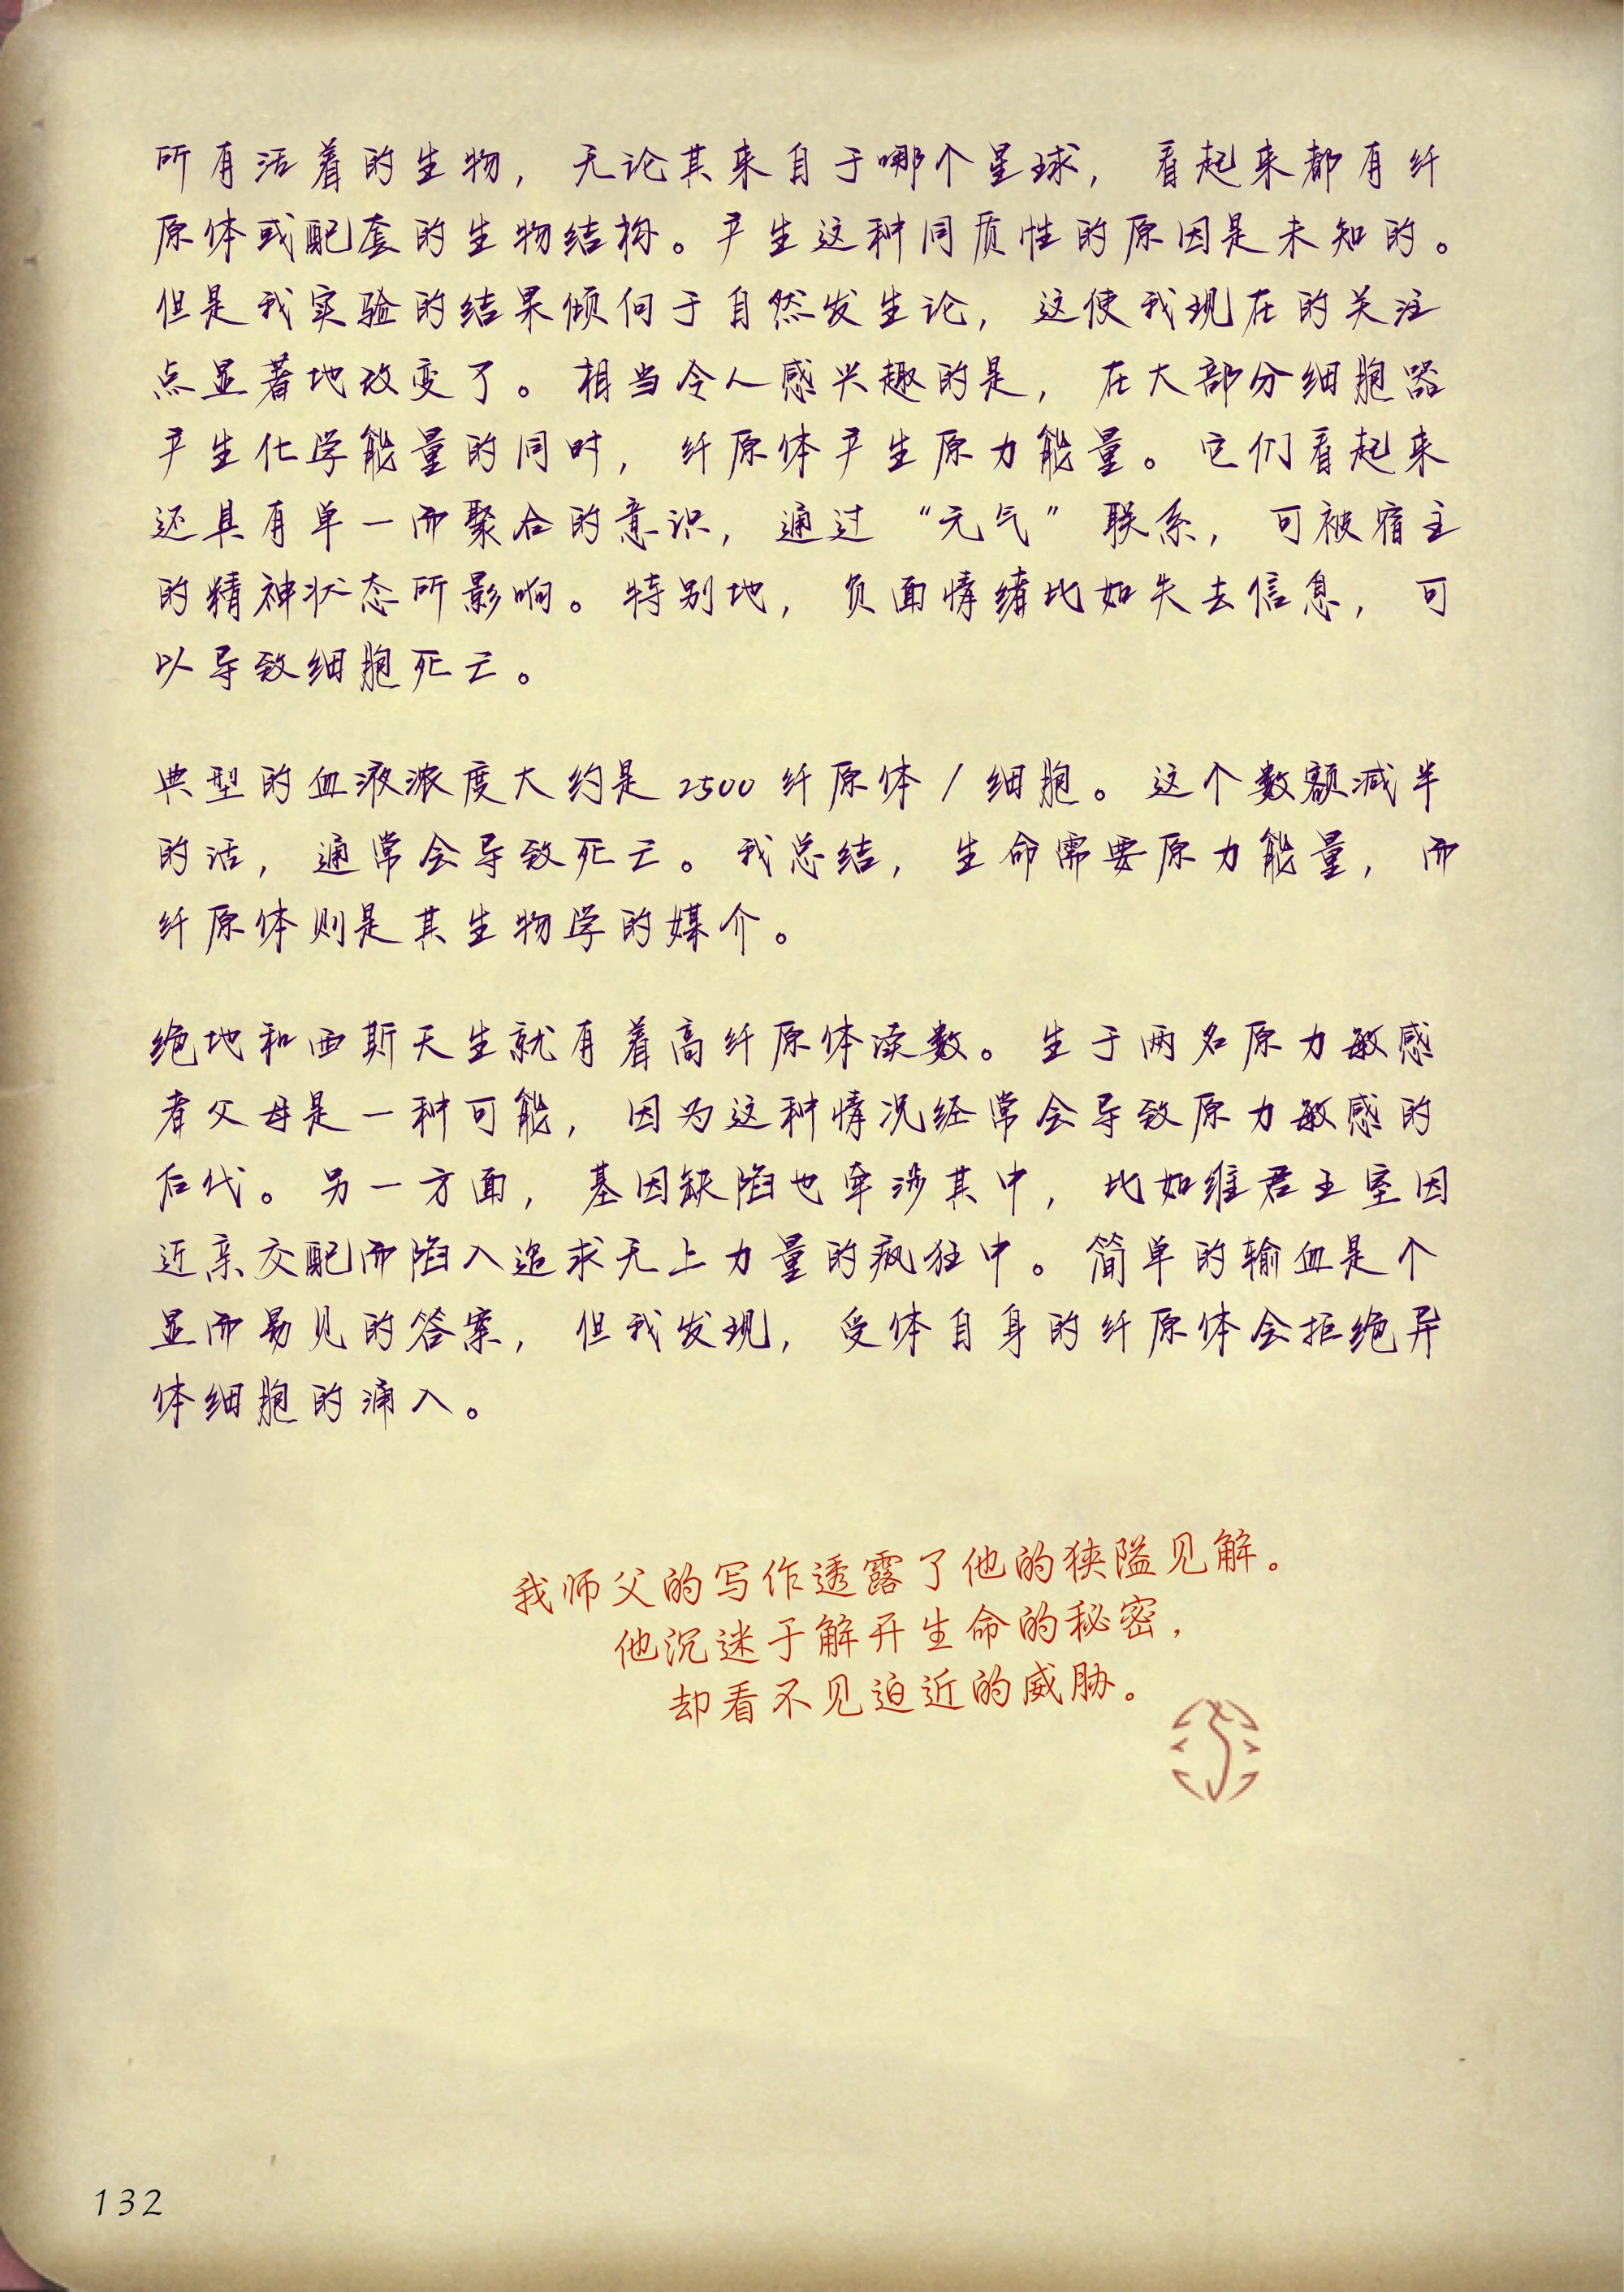 所有活着的生物，无论其来自于哪个星球，看起来都有纤
原体或配套的生物结构。产生这种同质性的原因是未知的。
但是我实验的结果倾向于自然发生论，这使我现在的关注
点显著地改变了。相当令人感兴趣的是，在大部分细胞器
产生化学能量的同时，纤原体产生原力能量。它们看起来
还具有单一而聚合的意识，通过“元气”联系，可被宿主
的精神状态所影响。特别地，负面情绪比如失去信息，可
以导致细胞死亡。
典型的血液浓度大约是2500纤原体/细胞。这个数额减半
的话，通常会导致死亡。我总结，生命需要原力能量，而
纤原体则是其生物学的媒介。
绝地和西斯天生就有着高纤原体读数。生于两名原力敏感
者父母是一种可能，因为这种情况经常会导致原力敏感的
后代。另一方面，基因缺陷也牵涉其中，比如维君王室因
近亲交配而陷入追求无上力量的疯狂中。简单的输血是个
显而易见的答案，但我发现，受体自身的纤原体会拒绝异
体细胞的涌入。
我师父的写作透露了他的狭隘见解。
他沉迷于解开生命的秘密，
却看不见迫近的威胁。
132